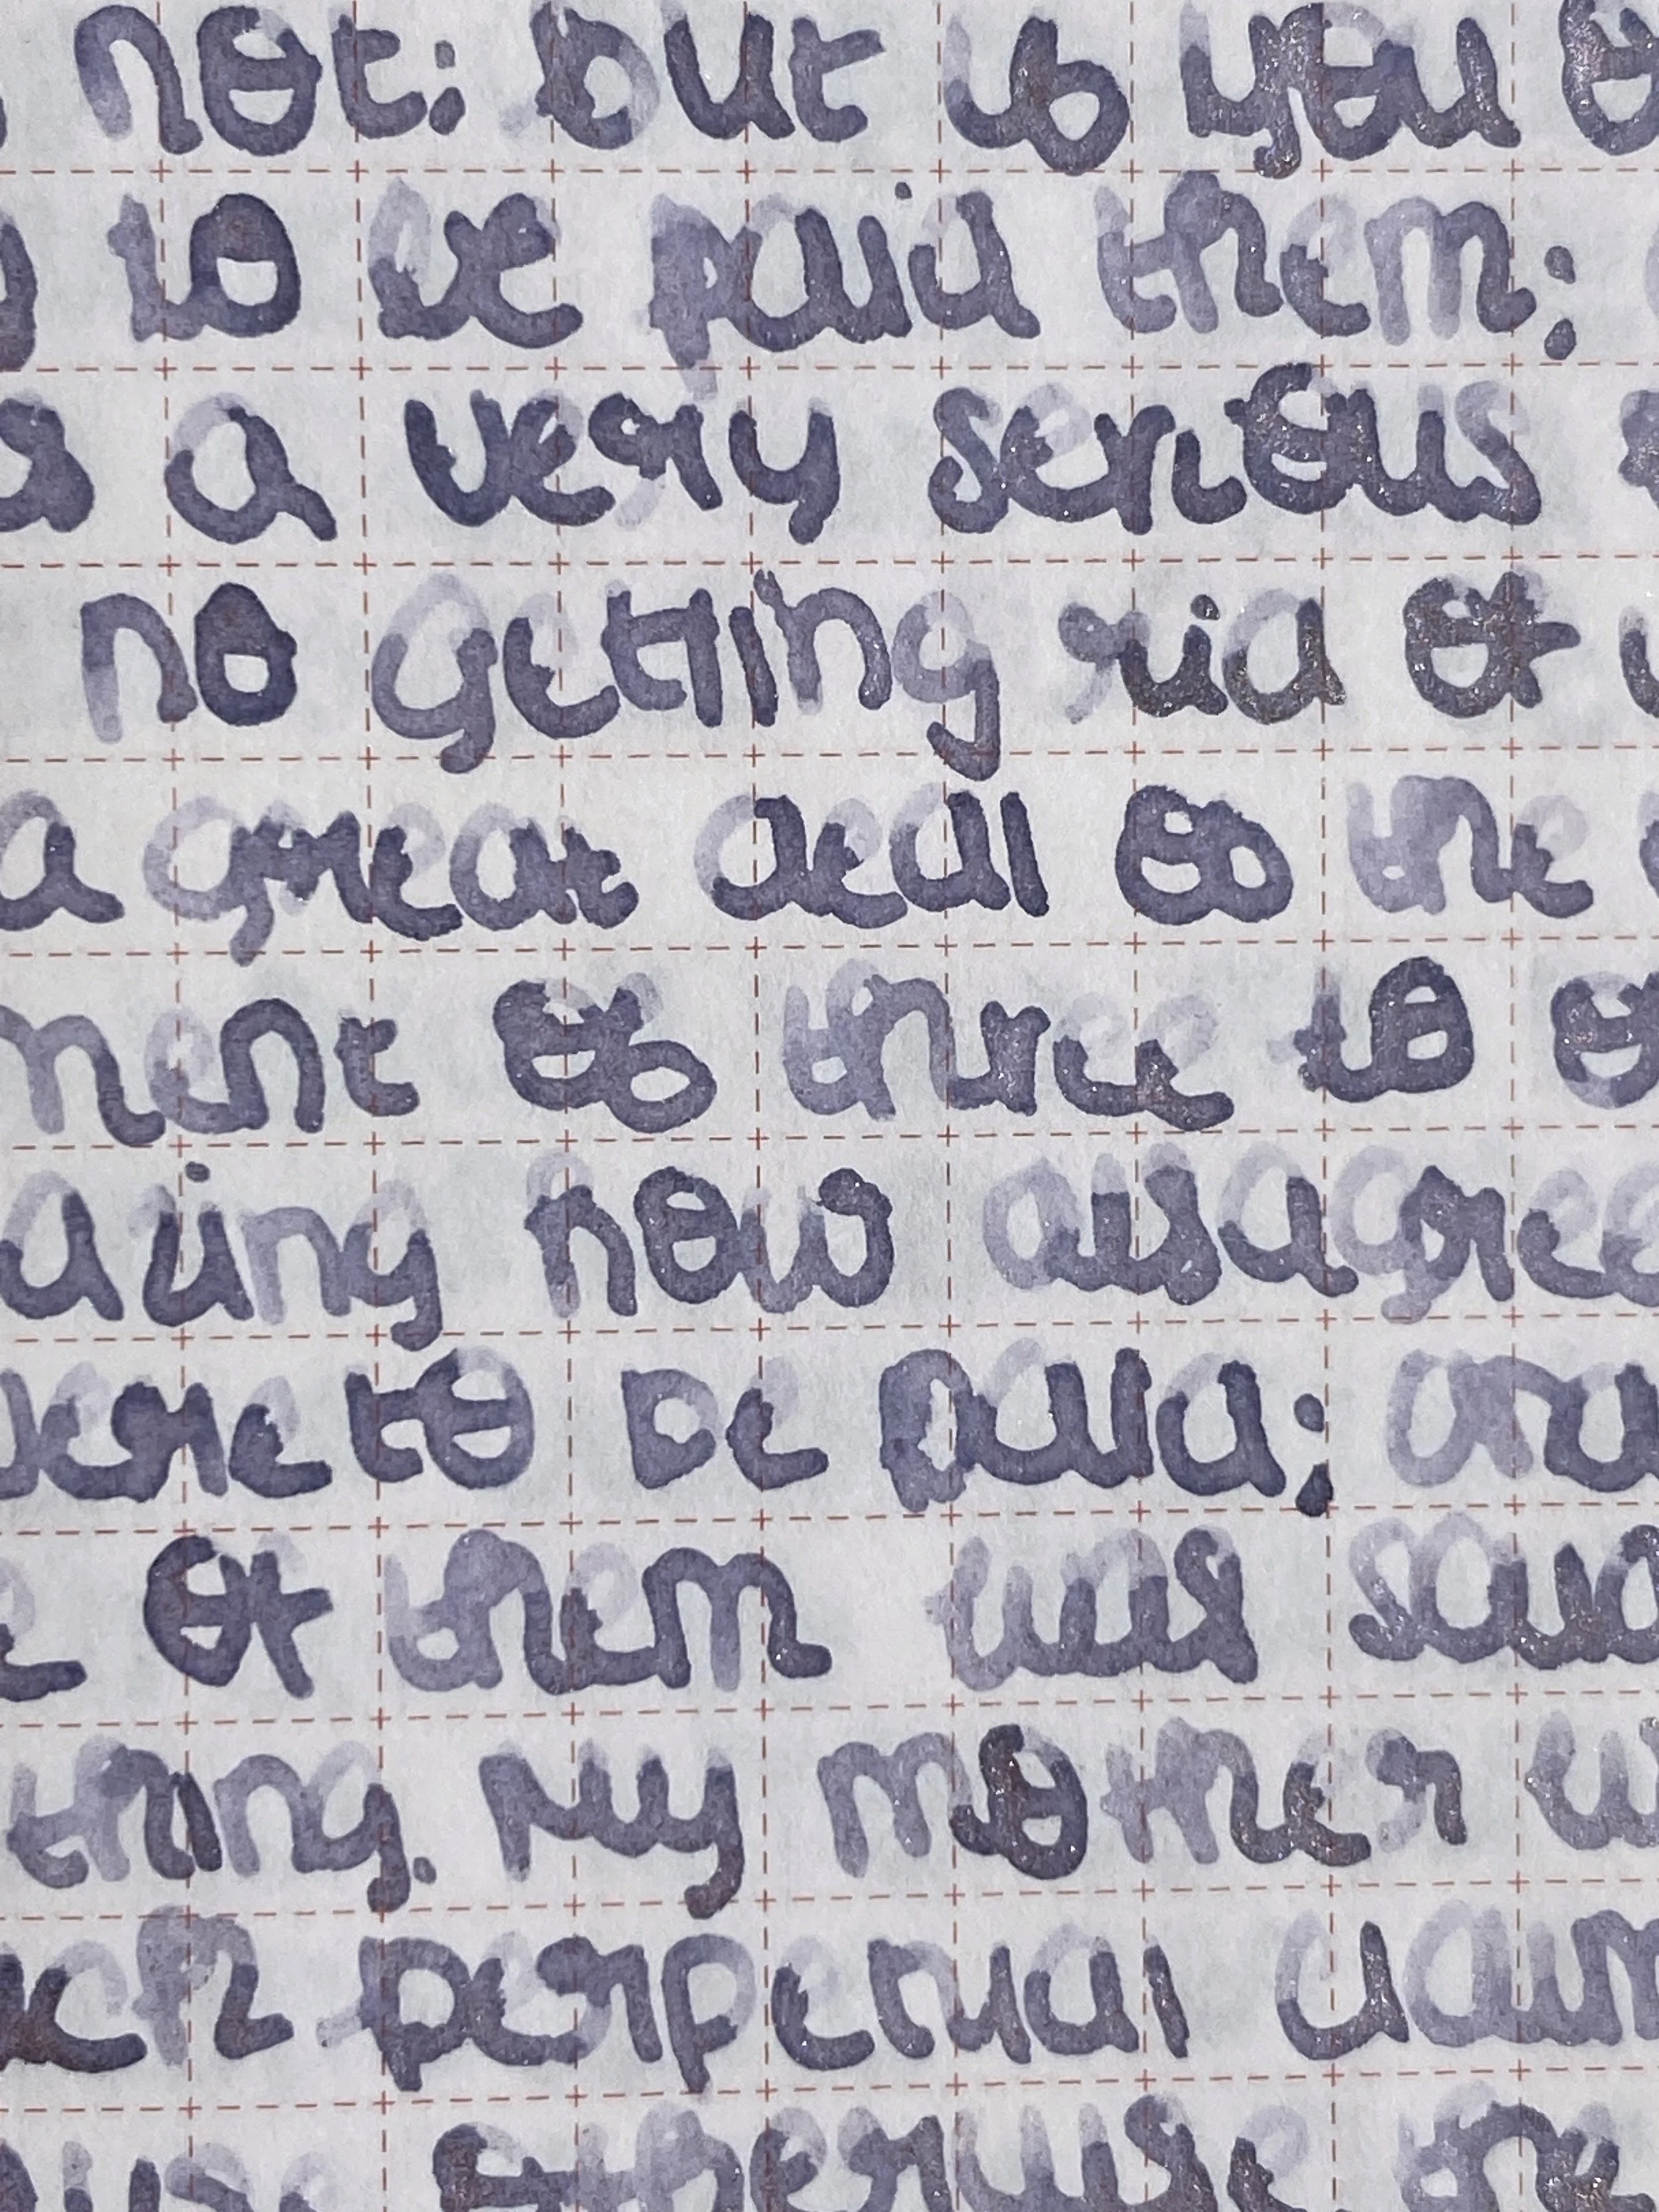 not; but if you o
to be paid them;
a very serious
no getting rid of
a great deal of the
ment of three to o
azing how disagree
were to be paid; and
of them was said
thing. My mother w
uch perpetual claim
ause, otherwise, the